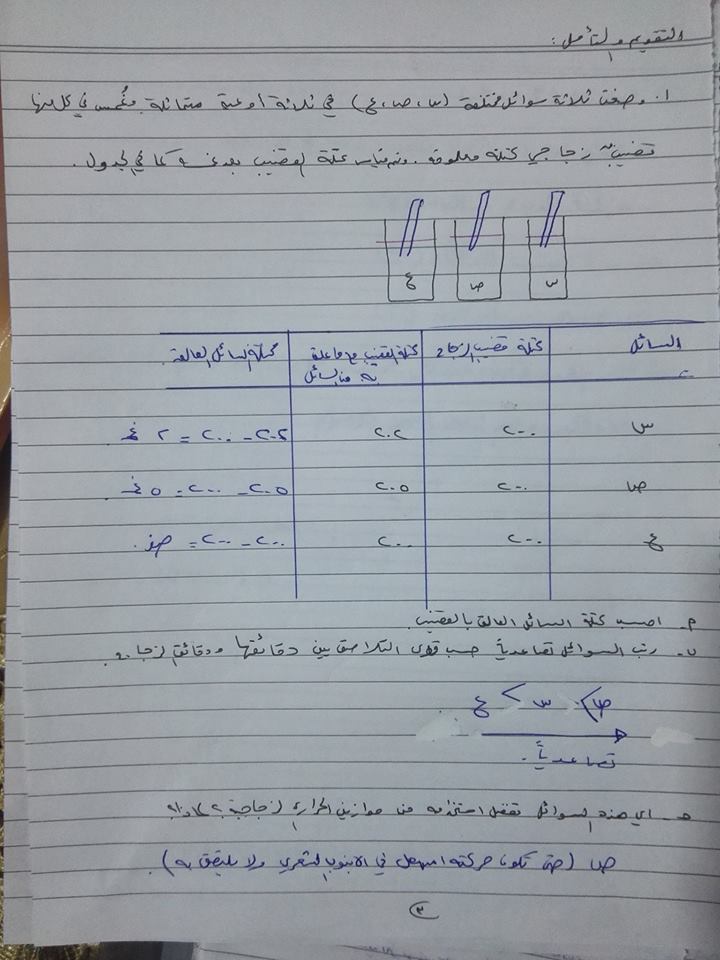 التقويم والتأمل :
١. وضعت ثلاثة سوائل مختلفة (س، ص، ع) في ثلاثة أوعية متماثلة وغُمس في كل منها
قضيب زجاجي كتلته معلومة. وتم قياس كتلة القضيب بعد غمسه كما في الجدول.
ع ص س
السائل كتلة قضيب الزجاج كتلة القضيب مع ما علق به من السائل كتلة السائل العالقة
س ٢٠٠ ٢٠٢ ٢٠٢ - ٢٠٠ = ٢ غم
ص ٢٠٠ ٢٠٥ ٢٠٥ - ٢٠٠ = ٥ غم
ع ٢٠٠ ٢٠٠ ٢٠٠ - ٢٠٠ = صفر.
م- احسب كتلة السائل العالق بالقضيب.
ب- رتب السوائل تصاعدياً حسب قوى التلاصق بين دقائقها ودقائق الزجاج.
ص > س > ع
تصاعدياً.
هـ- اي هذه السوائل تفضل استخدامه في موازين الحرارة الزجاجية؟ لماذا؟
ص (حتى تكون حركته اسهل في الانبوب الشعري ولا يلتصق به).
٣